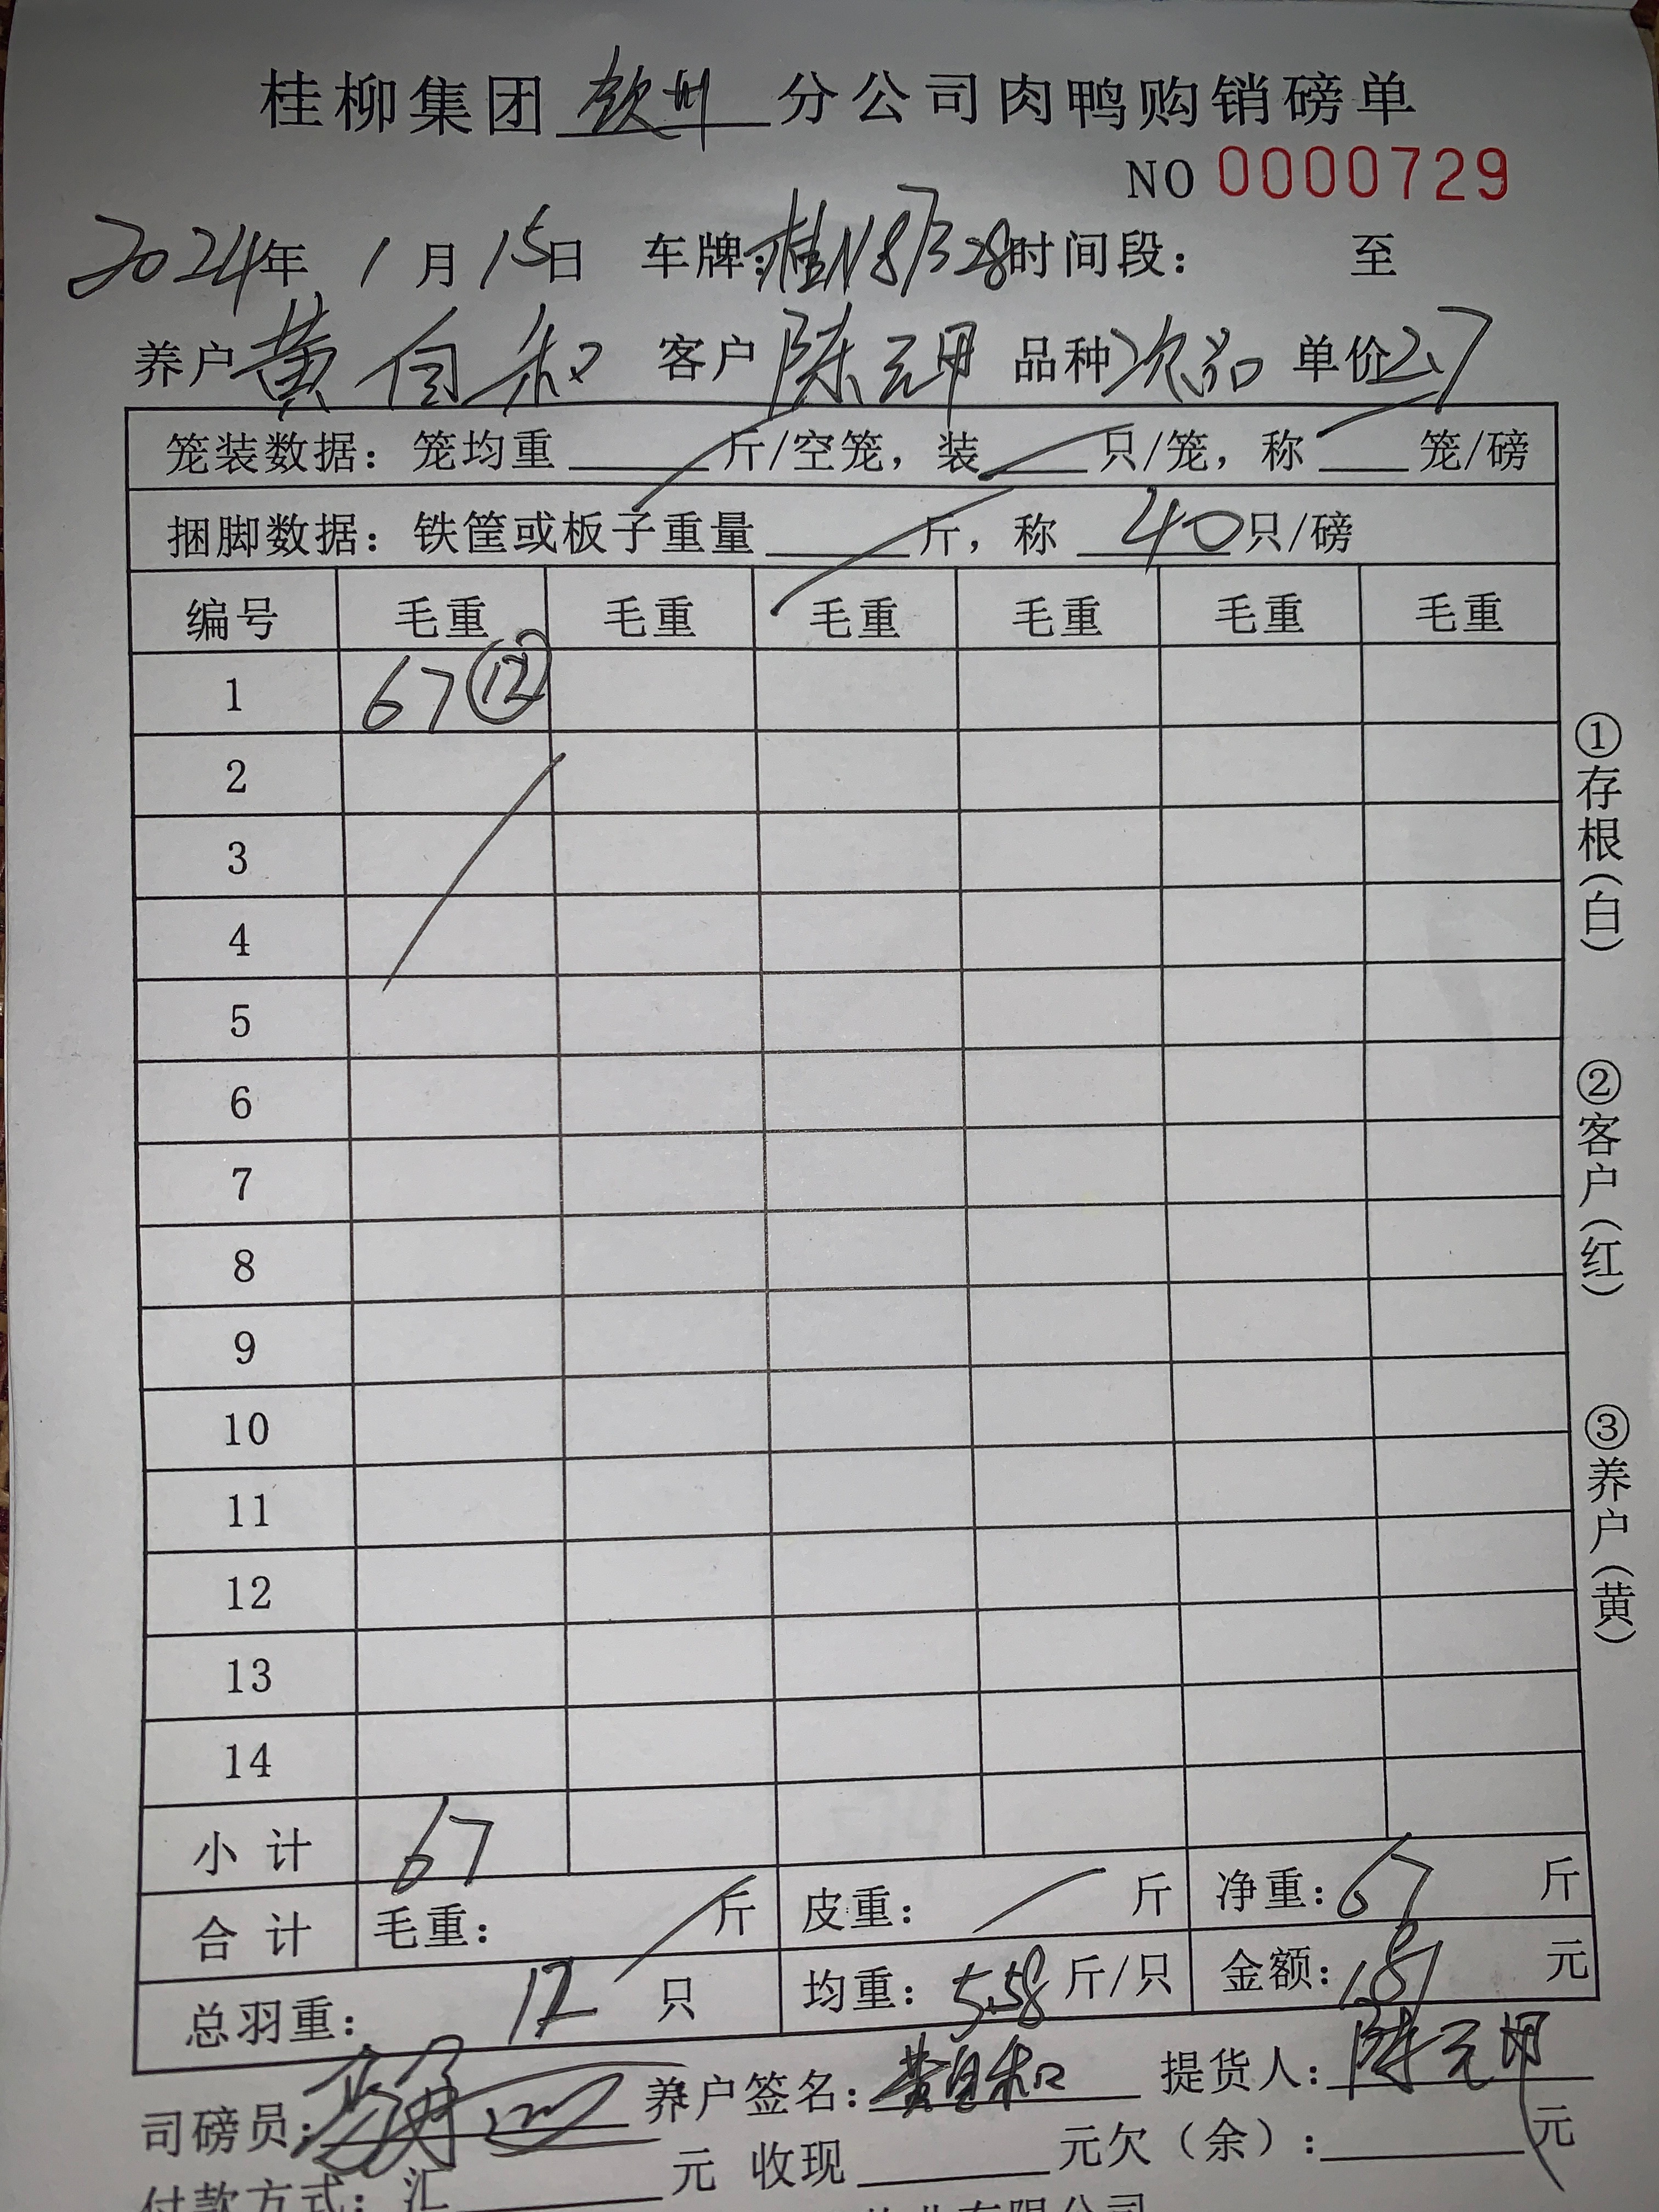 桂柳集团 钦州 分公司肉鸭购销磅单
NO 0000729
2024年 1月 15日 车牌:桂N87328 时间段: 至
养户 黄自和 客户 陈元 品种 次品 单价 2.7
笼装数据: 笼均重 斤/空笼, 装 只/笼, 称 笼/磅
捆脚数据: 铁筐或板子重量 斤, 称 40 只/磅
编号 毛重 毛重 毛重 毛重 毛重 毛重
1 67 ⑫
2
3
4
5
6
7
8
9
10
11
12
13
14
小计 67
合计 毛重: 斤 皮重: 斤 净重: 67 斤
总羽重: 12 只 均重: 5.58 斤/只 金额: 181 元
司磅员: 养户签名: 黄自和 提货人: 陈元
付款方式: 汇 元 收现 元欠(余): 元
业有限公司
①存根(白)
②客户(红)
③养户(黄)